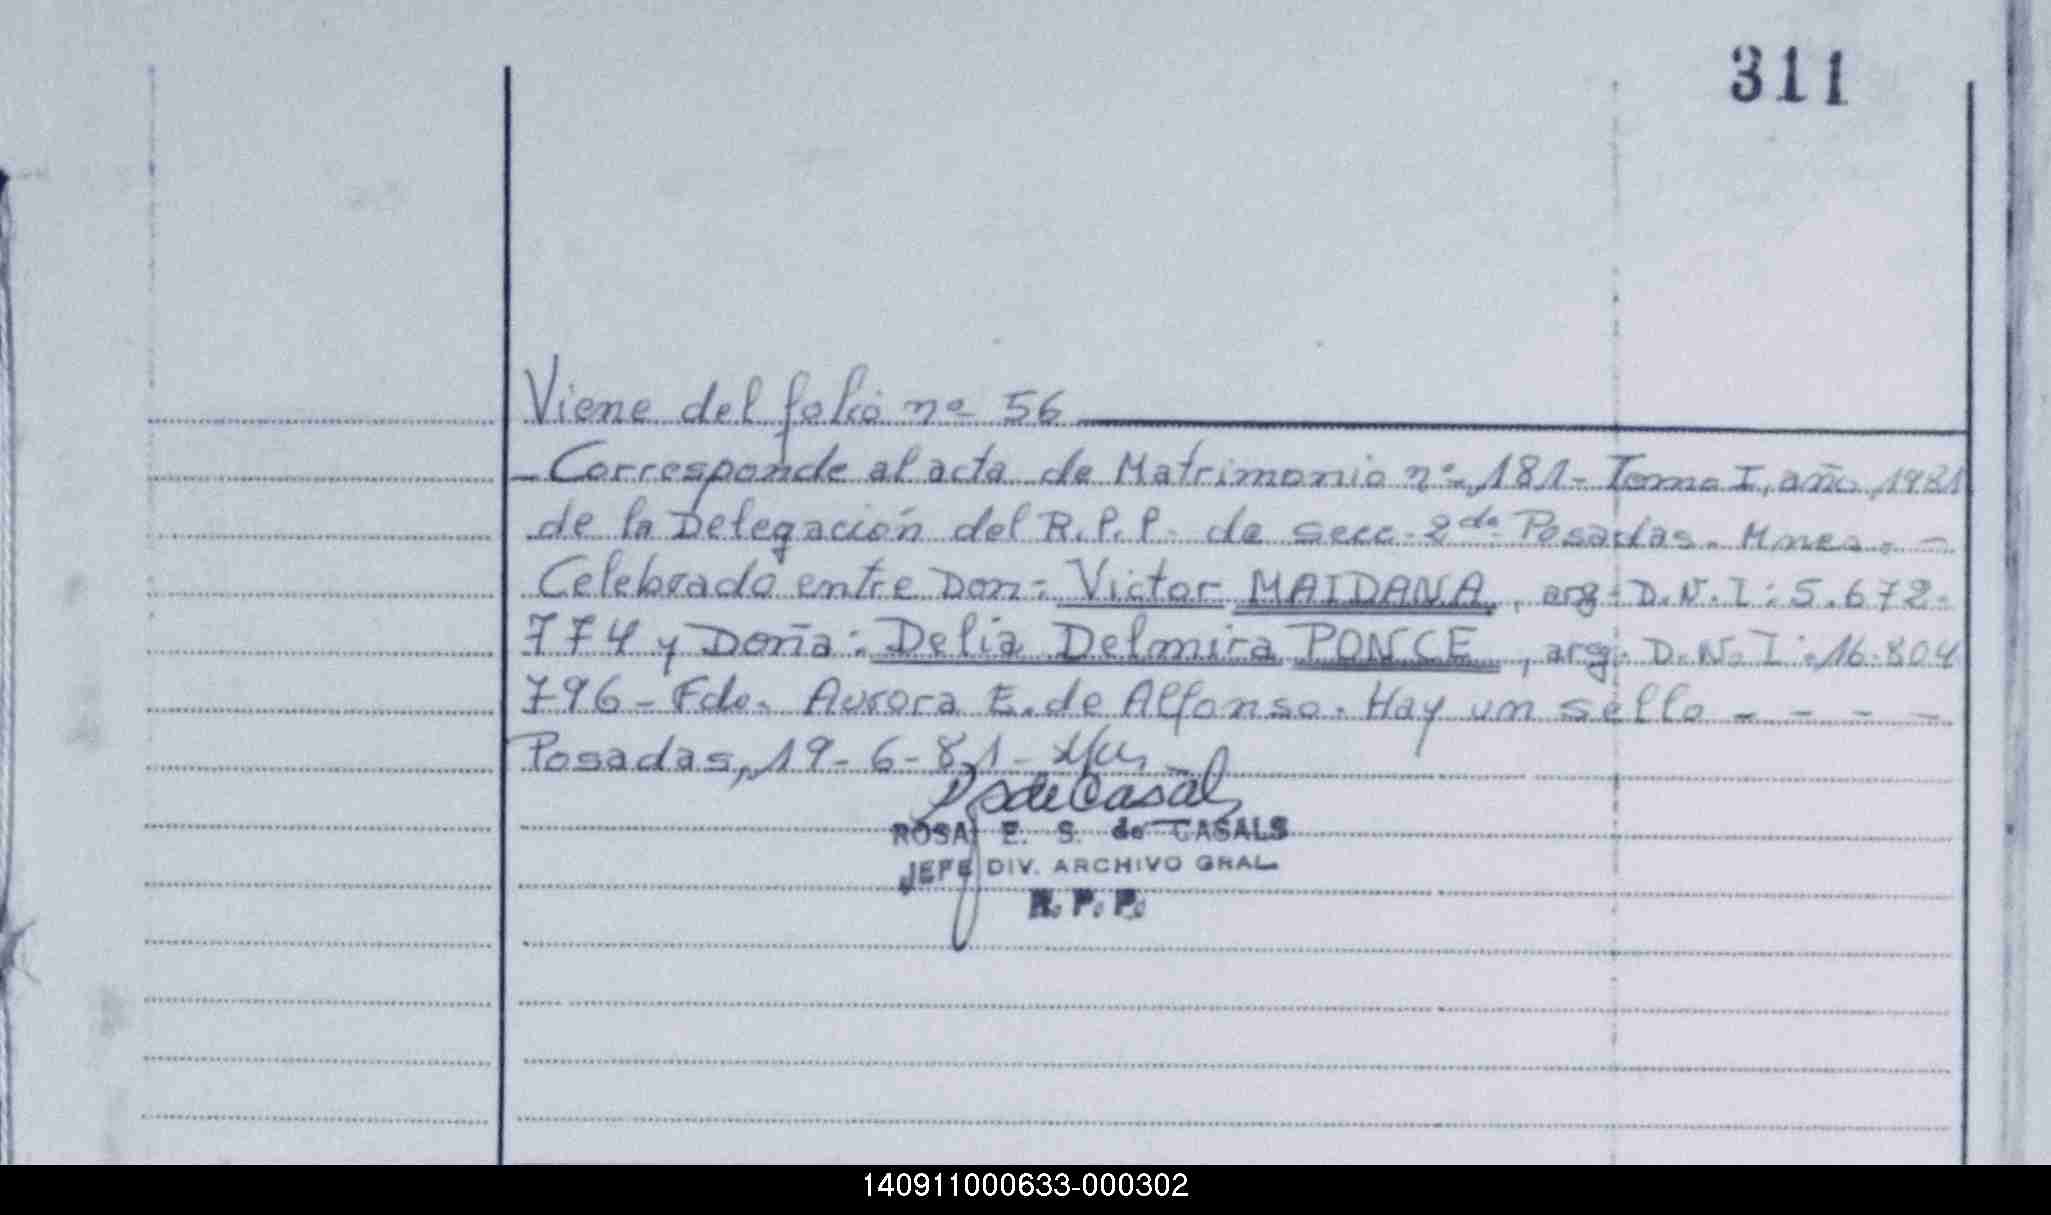 311
Viene del folio nº 56
- Corresponde al acta de Matrimonio nº 181 - Tomo I, año 1981
de la Delegación del R.P.P. de secc. 2da Posadas. Mnes. -
Celebrado entre Don: Victor MAIDANA, arg. D.N.I: 5.672-
774 y Doña: Delia Delmira PONCE, arg. D.N.I: 16.804
796 - Fdo. Aurora E. de Alfonso. Hay un sello - - - -
Posadas, 19-6-81 -
de Casals
ROSA E. S. de CASALS
JEFE DIV. ARCHIVO GRAL
R. P. P.
140911000633-000302